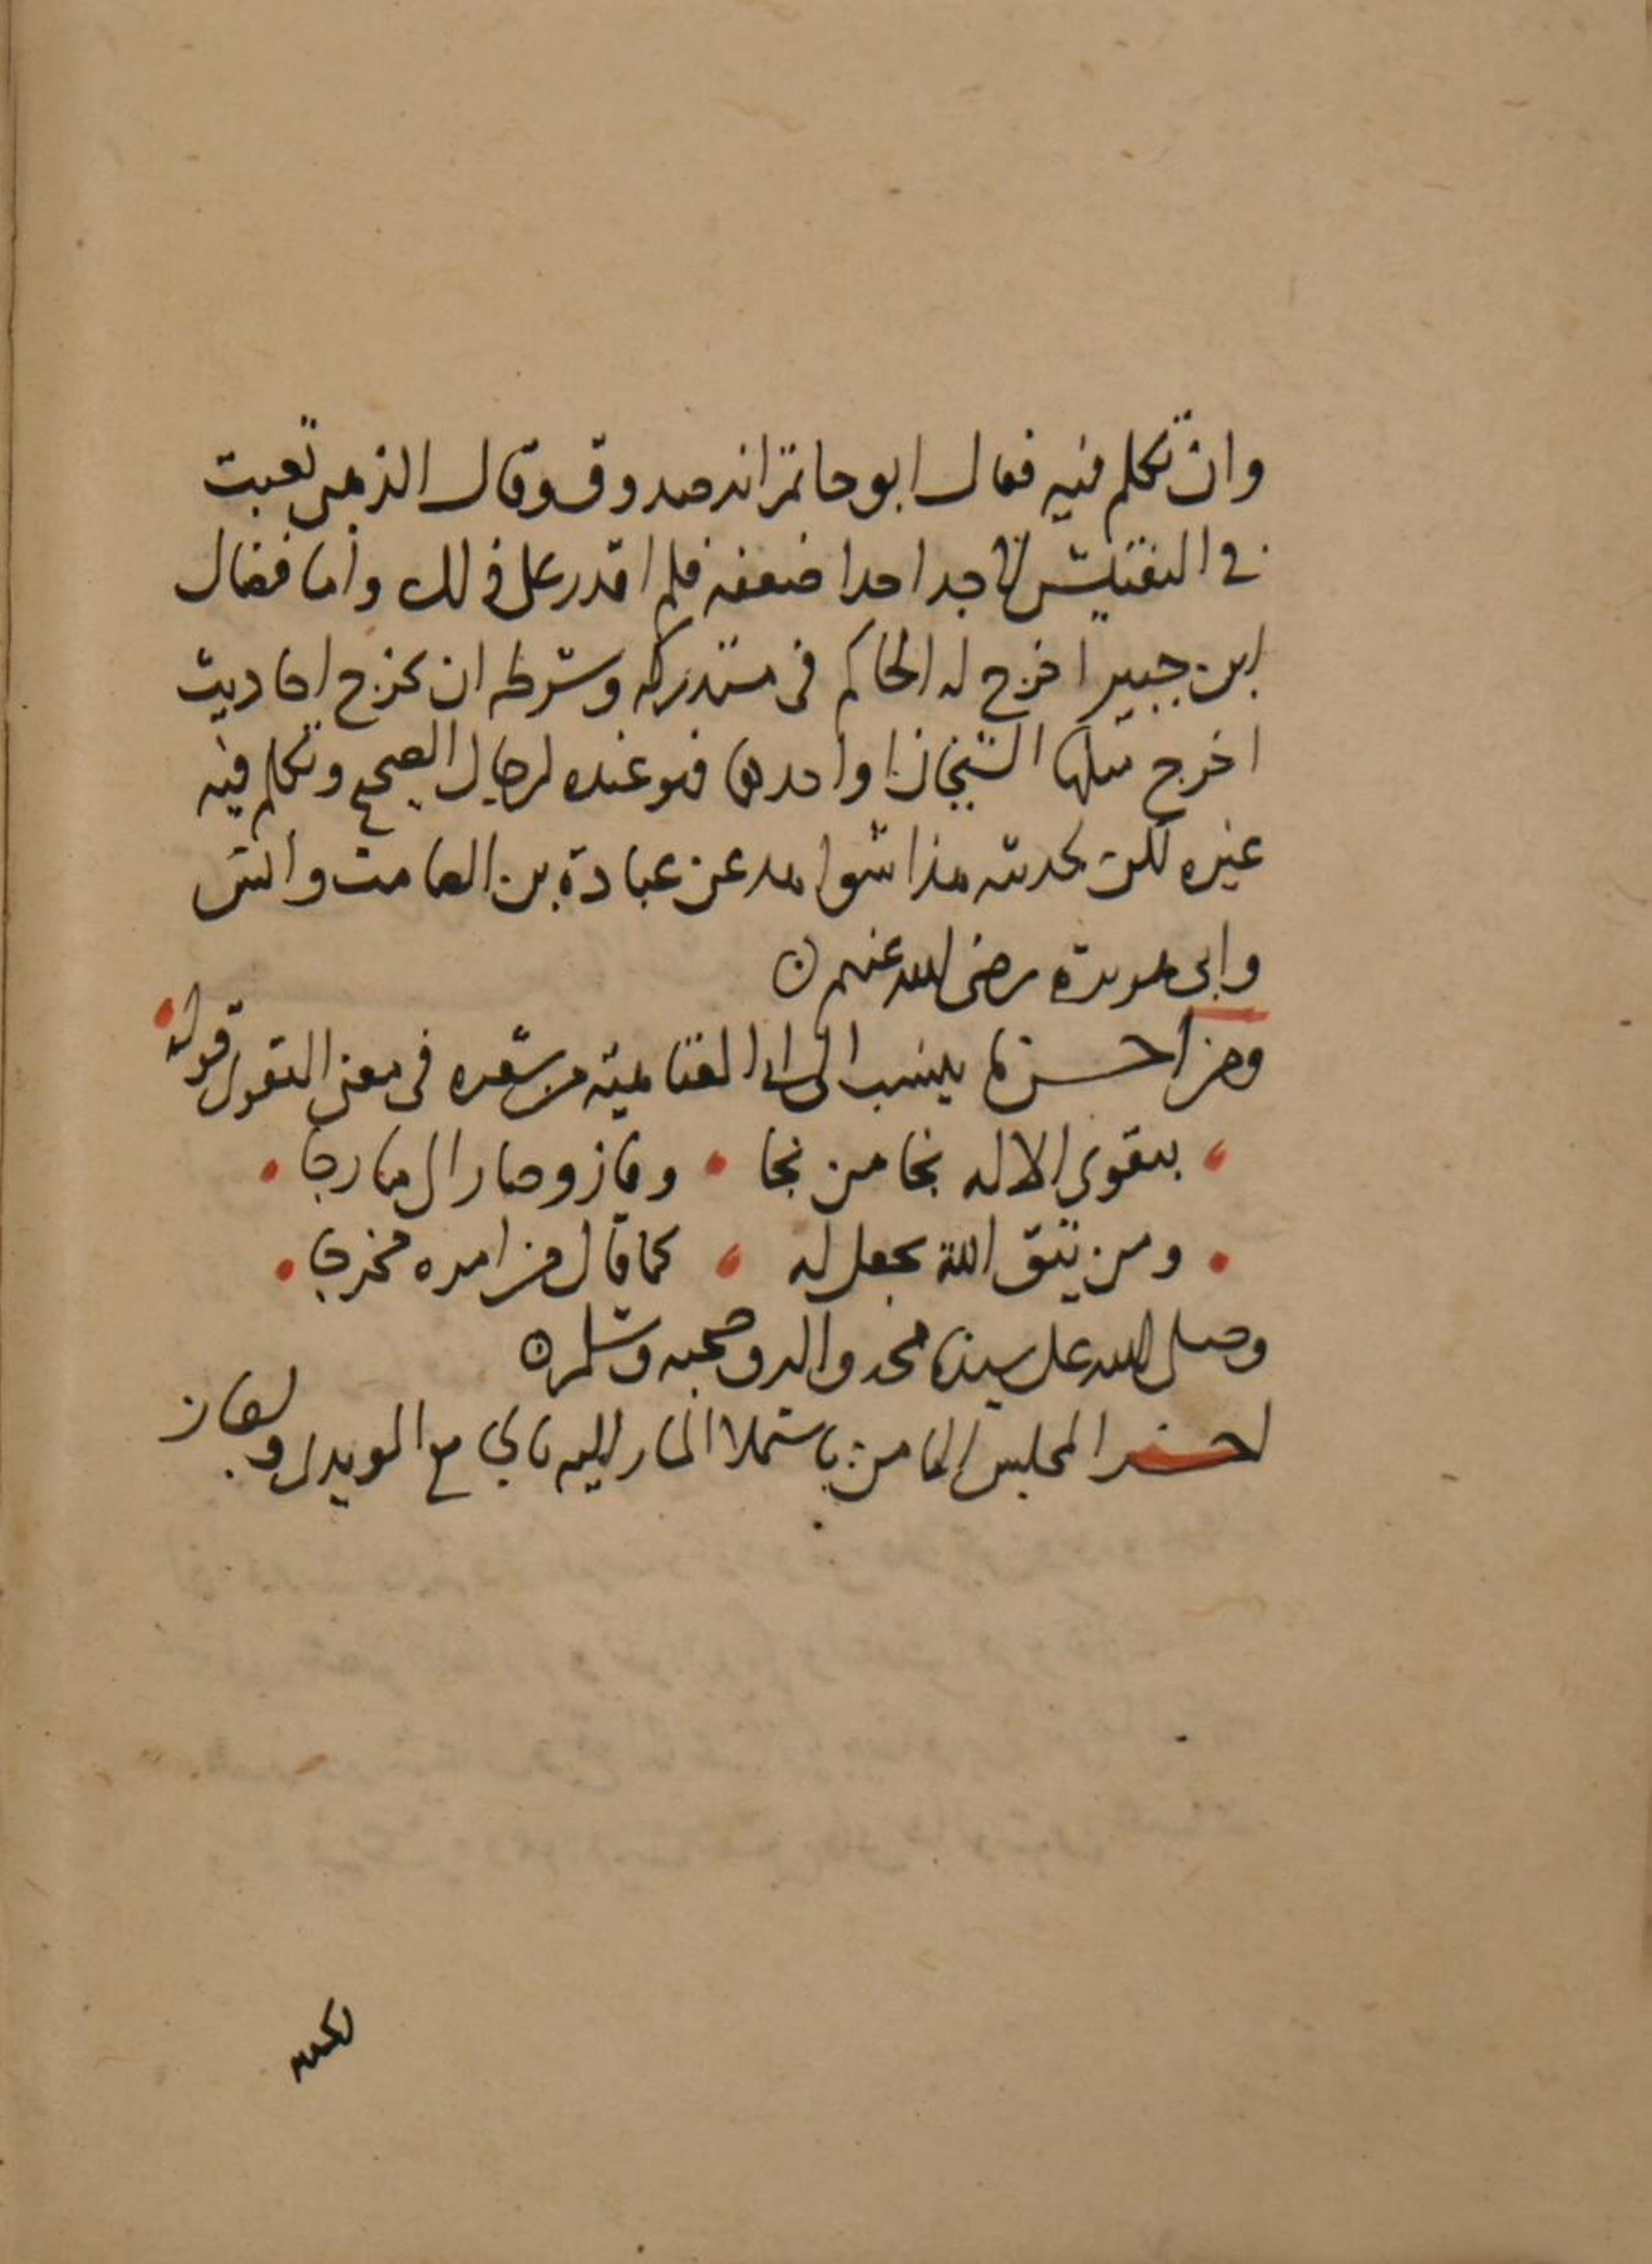 وان تكلم فيه فقال ابو حاتم انه صدوق وقال الذهبي تعبت
في التفتيش لاجد احدا ضعفه فلم اقدر على ذلك واما فضال
ابن جبير اخرج له الحاكم في مستدركه وشرطه ان يخرج احاديث
اخرج مثلها الشيخان او احدهما فهو عنده لرجال الصحيح وتكلم فيه
غيره لكن لحديثه هذا شواهد عن عبادة بن الصامت وانس
وابي هريرة رضي الله عنهم
ومن احسن ما ينسب الى ابي العتاهية من شعره في معنى التقوى قوله
بتقوى الاله نجا من نجا وفاز وصار الى ما رجا
ومن يتق الله يجعل له كما قال من امره مخرجا
وصلى الله على سيدنا محمد واله وصحبه وسلم
اخر المجلس الثامن باستملا المشار اليه بالجامع المويدي